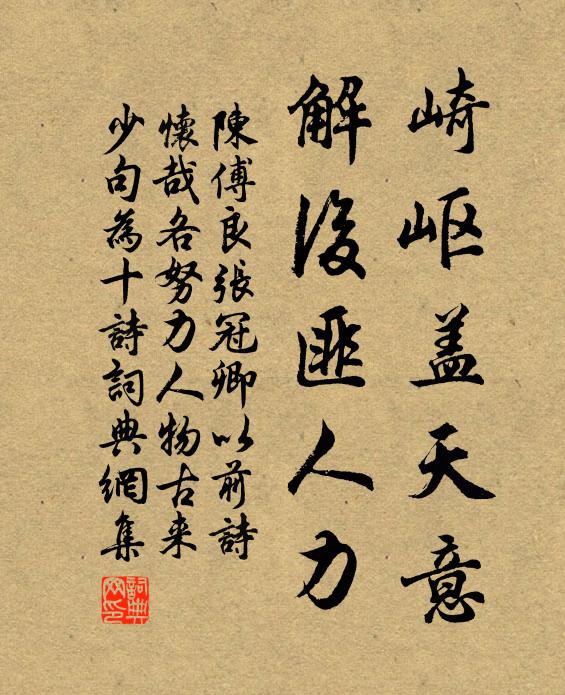 崎岖盖天意
解後匪人力
陳傅良張冠卿以前詩
懷哉各努力人物古来
少句為十詩詞典網集
詞典网印